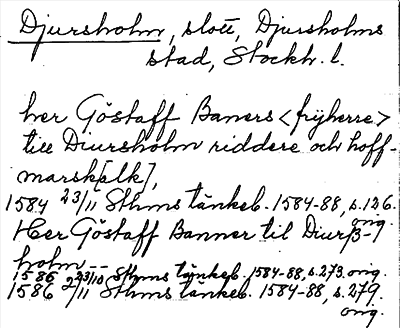 Djursholm, slott, Djursholms
stad, Stockh. l.
her Göstaff Baners <fryherre>
till Diursholm riddere och hoff-
marsk[alk],
1584 23/11 Sthms tänkeb. 1584-88, s. 126.
orig.
Her Göstaff Banner til Diurß-
holm --
1586 23/10 Sthms tänkeb. 1584-88, s. 273. orig.
1586 2/11 Sthms tänkeb. 1584-88, s. 279.
orig.